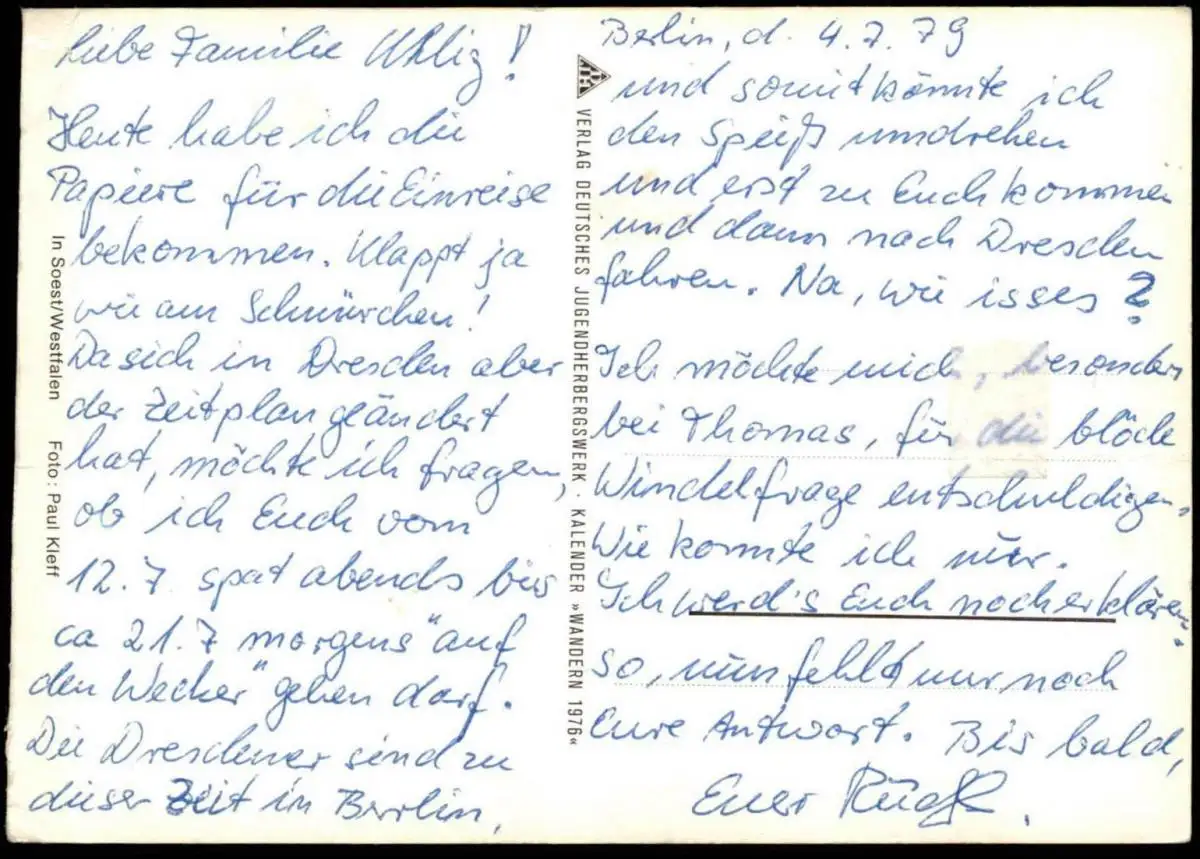 Liebe Familie Uhlig!
Heute habe ich die
Papiere für die Einreise
bekommen. Klappt ja
wie am Schnürchen!
Da sich in Dresden aber
der Zeitplan geändert
hat, möchte ich fragen,
ob ich Euch vom
12.7 spät abends bis
ca 21.7 morgens "auf
den Wecker" gehen darf.
Die Dresdner sind zu
dieser Zeit in Berlin,
Berlin, d. 4.7.79
und somit könnte ich
den Spieß umdrehen
und erst zu Euch kommen
und dann nach Dresden
fahren. Na, wie isses?
Ich möchte mich, besonders
bei Thomas, für die blöde
Windelfrage entschuldigen.
Wie konnte ich nur.
Ich werd's Euch noch erklären!
So, nun fehlt nur noch
Eure Antwort. Bis bald,
Euer
In Soest/Westfalen Foto: Paul Kleff
VERLAG DEUTSCHES JUGENDHERBERGSWERK · KALENDER »WANDERN 1976«